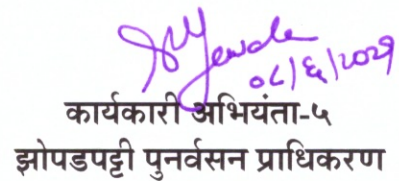 ०८/६/२०२१
कार्यकारी अभियंता-५
झोपडपट्टी पुनर्वसन प्राधिकरण